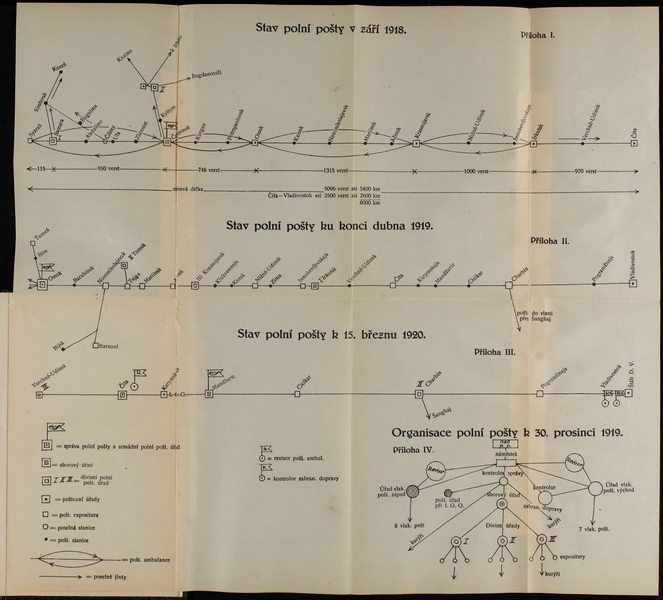 Stav polní pošty v září 1918.
Příloha I.
Kazaň
Bogdanoviči
Kyštym
Simbirsk
Samara
Ufa
Omsk
Krasnojarsk
Irkutsk
Verchně-Udinsk
Čita
115
950 verst
746 verst
1315 verst
1000 verst
970 verst
celková délka
5096 verst asi 5400 km
Čita—Vladivostok asi 2500 verst asi 2600 km
8000 km
Stav polní pošty ku konci dubna 1919.
Příloha II.
Tomsk
Omsk
Barabinsk
Novonikolajevsk
Tajga
Mariinsk
III Krasnojarsk
Kansk
Nižně-Udinsk
Zima
Innokentěvskaja
Verchně-Udinsk
Čita
Karymskaja
Mandžurie
Cicikar
Charbin
Pograničnaja
Vladivostok
Bijsk
Barnaul
pošt. do vlasti
přes Šanghaj
Stav polní pošty k 15. březnu 1920.
Příloha III.
Verchně-Udinsk
Čita
Mandžurie
Cicikar
Charbin
Pograničnaja
Vladivostok
Štáb D. V.
Šanghaj
= správa polní pošty a armádní polní pošt. úřad
= sborový úřad
I II III = divisní polní
pošt. úřad
= poštovní úřady
= pošt. expositura
= poselná stanice
= pošt. stanice
= pošt. ambulance
= poselné jízdy
= revisor pošt. ambul.
= kontrolor zahran. dopravy
Organisace polní pošty k 30. prosinci 1919.
Příloha IV.
náměstek
Revisor
kontrolor správy
Úřad vlak.
pošt. západ
pošt. úřad
při I. O. O.
sborový úřad
kontrolor
zahran. dopravy
Úřad vlak.
pošt. východ
8 vlak. pošt
kurýři
Divisní úřady
kurýři
7 vlak. pošt.
I
II
III
expositury
kurýři